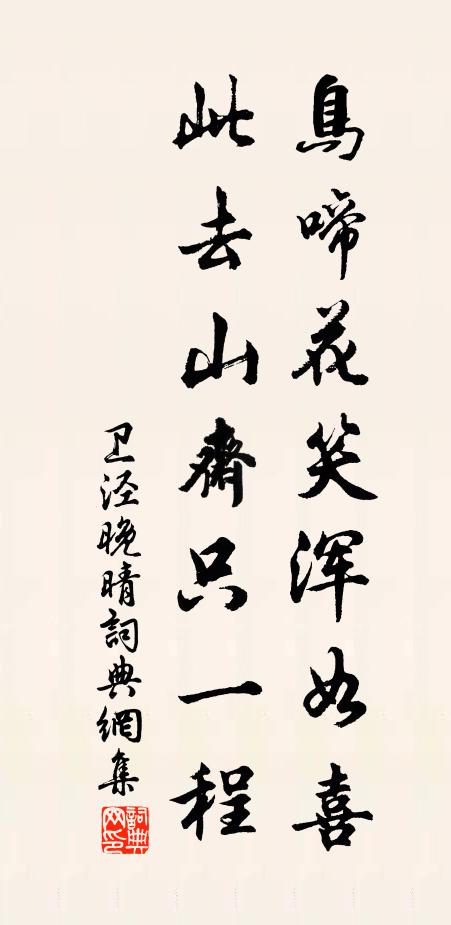 鳥啼花笑浑如喜
此去山齋只一程
卫泾晚晴詞典網集
詞典網印